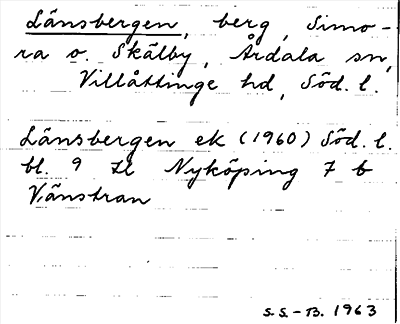 Länsbergen, berg, Simo-
ra o. Skälby, Årdala sn,
Villåttinge hd, Söd. l.
Länsbergen ek (1960) Söd. l.
bl. 9 H Nyköping 7 b
Vänstran
S.S.-B. 1963